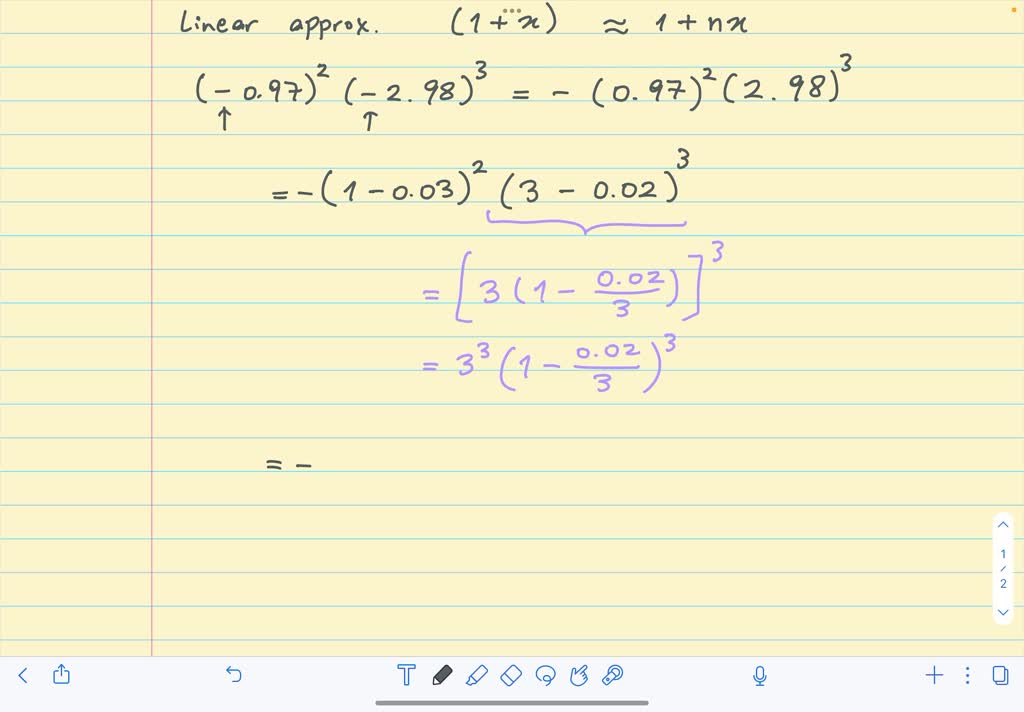 Linear approx. (1 + x) ≈ 1 + nx
(- 0.97)² (- 2.98)³ = - (0.97)² (2.98)³
↑ ↑
= - (1 - 0.03)² (3 - 0.02)³
= [3 (1 - 0.02/3)]³
= 3³ (1 - 0.02/3)³
= -
1
/
2
T